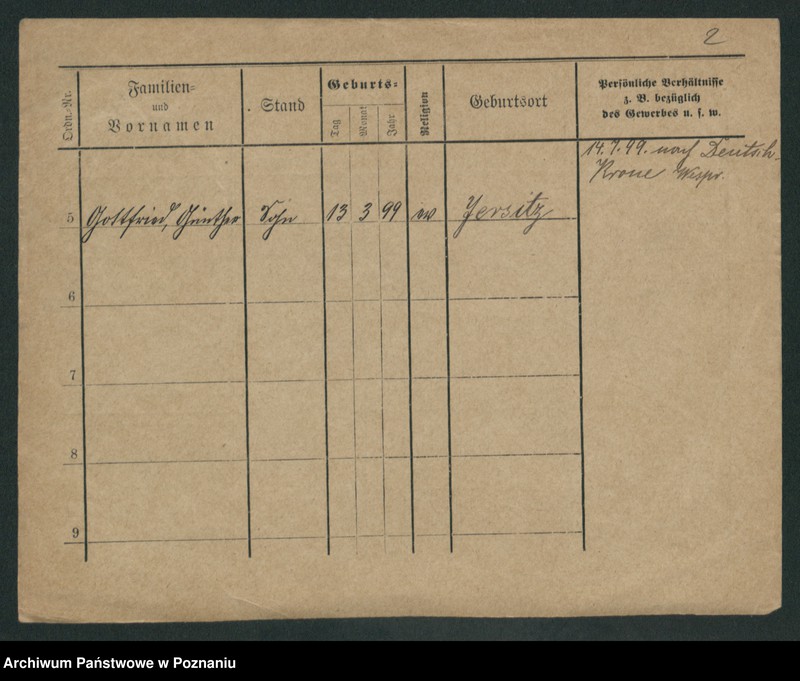 2
Ordn.-Nr.
Familien-
und
Vornamen
Stand
Geburts-
Tag
Monat
Jahr
Religion
Geburtsort
Persönliche Verhältnisse
z. B. bezüglich
des Gewerbes u. s. w.
14.7.99. nach Deutsch-
Krone Wespr.
5 Gottfried, Günther Sohn 13 3 99 ev Jersitz
6
7
8
9
Archiwum Państwowe w Poznaniu